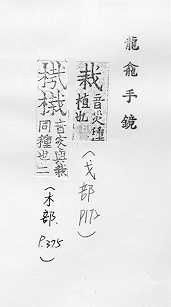 龍龕手鏡
栽音災種植也
(戈部P172)
音哉與栽同種也二
(木部P.375)